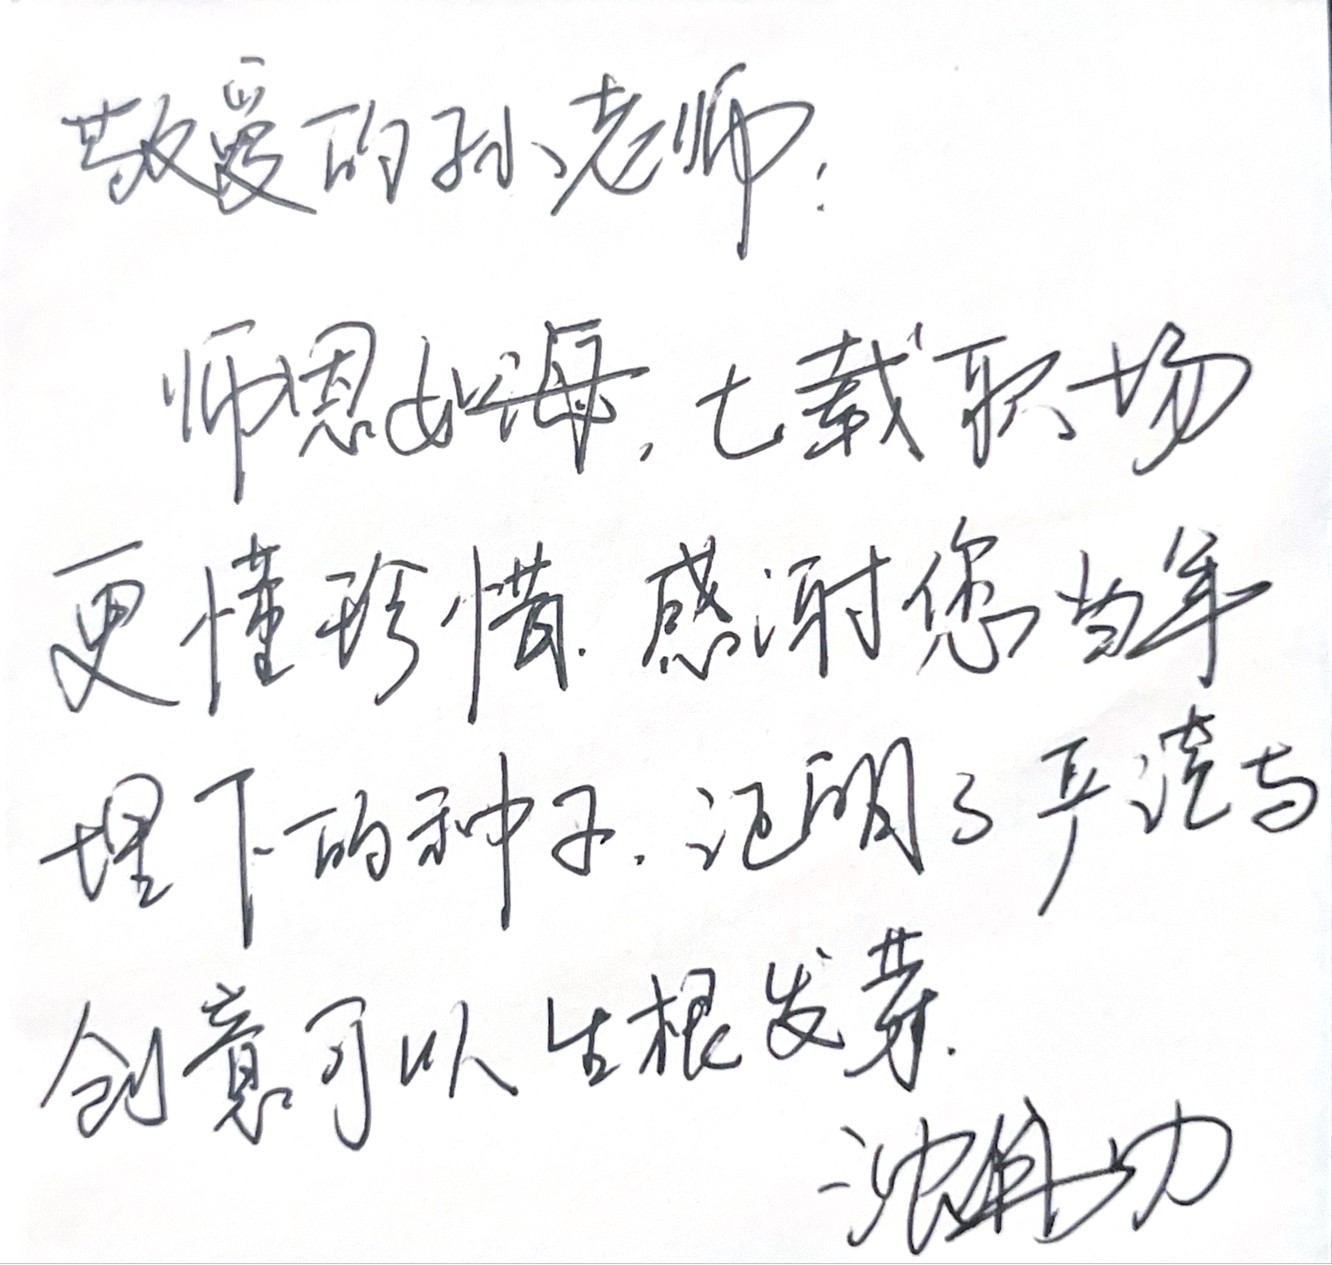 敬爱的孙老师:
师恩如海,七载职场
更懂珍惜.感谢您当年
埋下的种子.证明了严谨与
创意可以生根发芽.